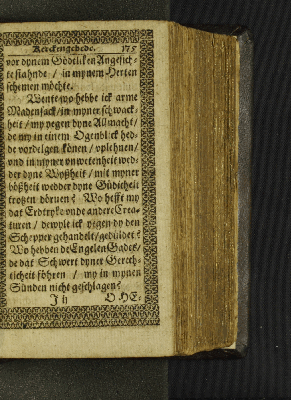 Kerckengebede. 175
vor dynem Gödtliken Angesich-
te stahnde / in mynem Herten
schemen möchte.
Wente wo hebbe ick arme
Madensack / in myner schwack-
heit / my yegen dyne Allmacht /
de my in einem Ogenblick hed-
de vordelgen könen / vplehnen /
vnd in myner vnwetenheit wed-
der dyne Wyßheit / mit myner
bößheit wedder dyne Güdicheit
trotzen dörven? Wo hefft my
dat Erdtryke vnde andere Crea-
turen / dewyle ick yegen dy den
Schepper gehandelt / geduldet?
Wo hebben de Engelen Gades /
de dat Schwert dyner Gerech-
ticheit föhren / my in mynen
Sünden nicht geschlagen?
J ij O HE-